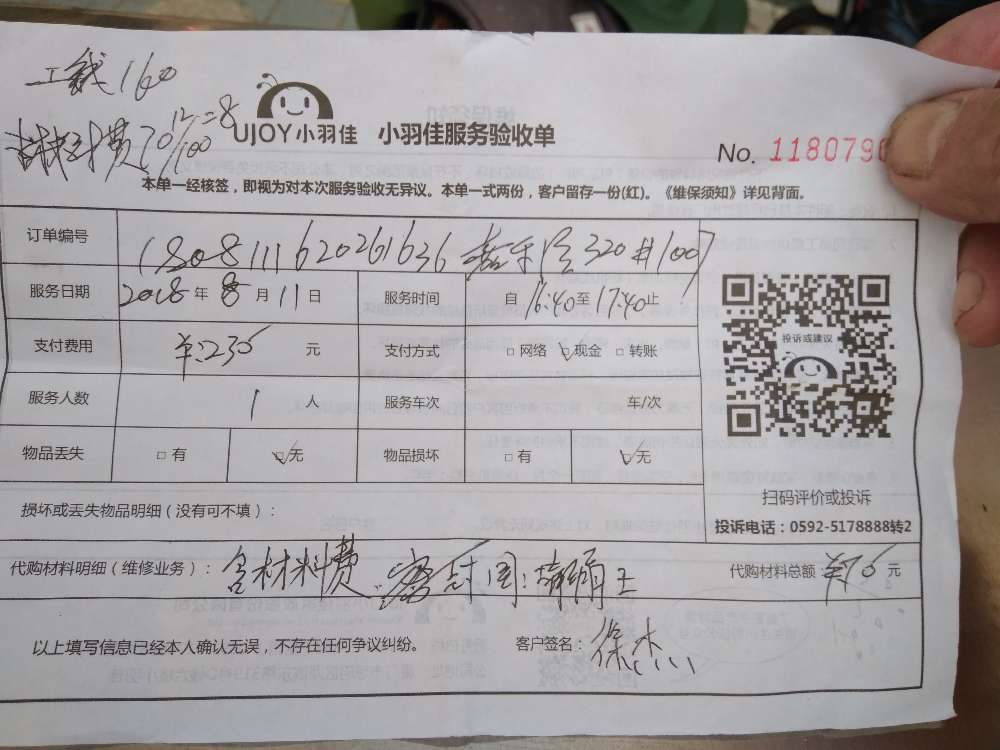 工钱160
材料费70
UJOY小羽佳 小羽佳服务验收单
No. 1180790
本单一经核签，即视为对本次服务验收无异议。本单一式两份，客户留存一份(红)。《维保须知》详见背面。
订单编号 1808111620261636 嘉禾路320#1007
服务日期 2018年8月11日 服务时间 自16:40至17:40止
支付费用 ¥:235 元 支付方式 □网络 ☑现金 □转账
投诉或建议
服务人数 1 人 服务车次 车/次
物品丢失 □有 ☑无 物品损坏 □有 ☑无
扫码评价或投诉
损坏或丢失物品明细（没有可不填）：
投诉电话：0592-5178888转2
代购材料明细（维修业务）： 含材料费 密封圈: 代购材料总额: 元
以上填写信息已经本人确认无误，不存在任何争议纠纷。 客户签名: 徐杰